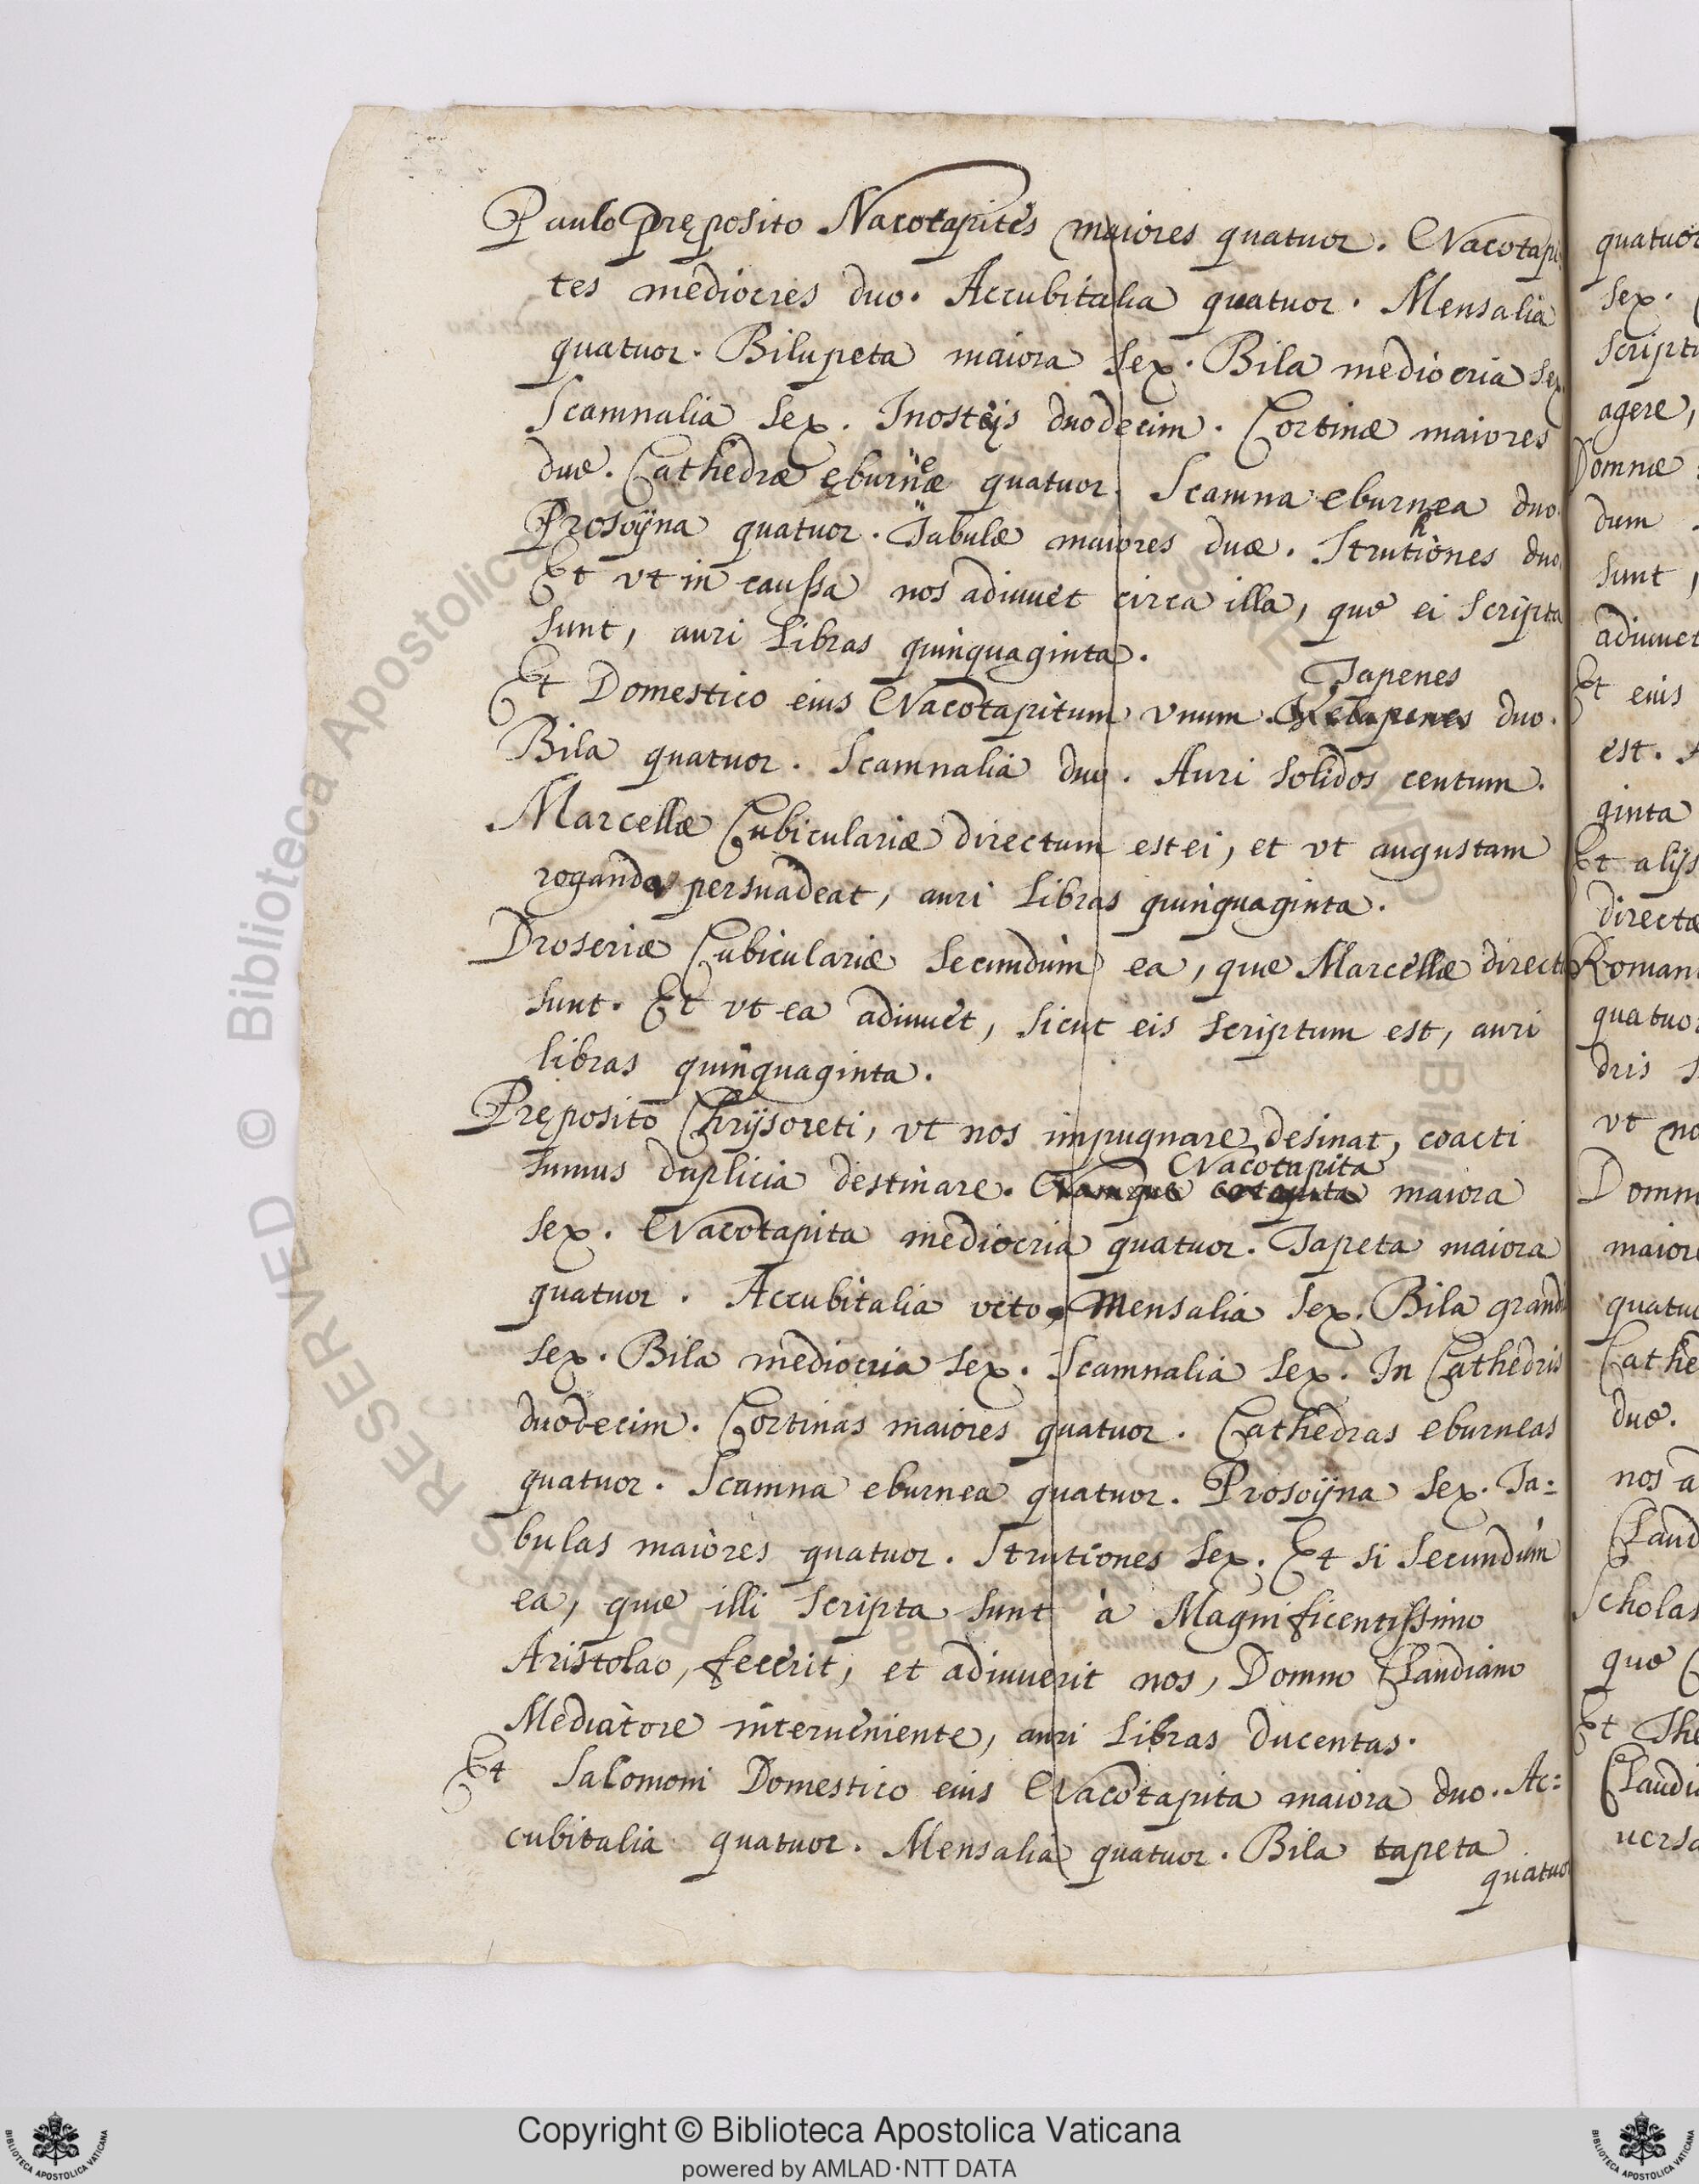 Paulo Pręposito Nacotapites maiores quatuor. Nacotapi
tes mediocres duo. Accubitalia quatuor. Mensalia
quatuor. Bilapeta maiora sex. Bila mediocria sex
Scamnalia sex. Inosteijs duodecim. Cortinæ maiores
duæ. Cathedræ ęburneæ quatuor. Scamna eburnea duo.
Prosoÿna quatuor. Tabulæ maiores duæ. Struthiones duo.
Et vt in caussa nos adiuuet circa illa, quæ ei scripta
sunt, auri libras quinquaginta.
Tapenes
Et Domestico eius Nacotapitum vnum. duo.
Bila quatuor. Scamnalia duo. Auri solidos centum.
Marcellæ Cubiculariæ directum est ei, et vt augustam
rogando persuadeat, auri libras quinquaginta.
Droseriæ Cubiculariæ secundùm ea, quæ Marcellæ direct
sunt. Et vt ea adiuuet, sicut eis scriptum est, auri
libras quinquaginta.
Pręposito Chrÿsoreti, vt nos impugnare desinat, coacti
Nacotapita
sumus duplicia destinare. Namque cotapita maiora
sex. Nacotapita mediocria quatuor. Tapeta maiora
quatuor. Accubitalia octo, Mensalia sex. Bila grandi
sex. Bila mediocria sex. Scamnalia sex. In Cathedris
duodecim. Cortinas maiores quatuor. Cathedras eburneas
quatuor. Scamna eburnea quatuor. Prosoÿna sex. Ta=
bulas maiores quatuor. Strutiones sex. Et si secundùm
ea, quæ illi scripta sunt à Magnificentissimo
Aristolao, fecerit, et adiuuerit nos, Domno Claudiano
Mediatore interueniente, auri libras ducentas.
Et Salomoni Domestico eius Nacotapita maiora duo. Ac=
cubitalia quatuor. Mensalia quatuor. Bila tapeta
quatuor
quatuor
sex.
script
agere,
Domnæ
dum
sunt,
adiuuet
Et eius
est.
ginta
Et alijs
directæ
Roman
quatuor
dris s
vt no
Domn
maiore
quatu
Cathe
duæ.
nos a
Claud
Scholas
quæ
Et The
Claudi
uersa
© Biblioteca Apostolica Vaticana
RESERVED
Copyright © Biblioteca Apostolica Vaticana
powered by AMLAD·NTT DATA
BIBLIOTECA APOSTOLICA VATICANA
BIBLIOTECA APOSTOLICA VATICANA